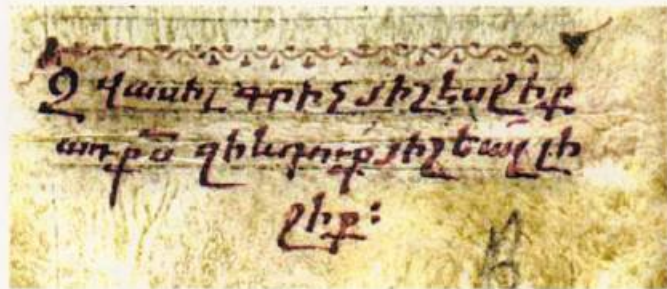 Զ վասիլ գրիչ յիշեսջիք
զի եւ դուք յիշեալ լի
ջիք։